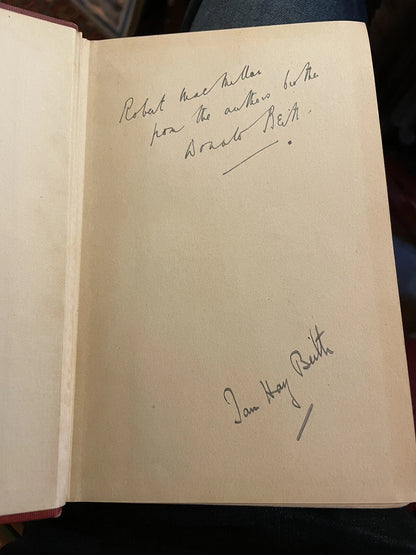 Robert MacMillan
from the authors brother
Donald Beith.
Ian Hay Beith